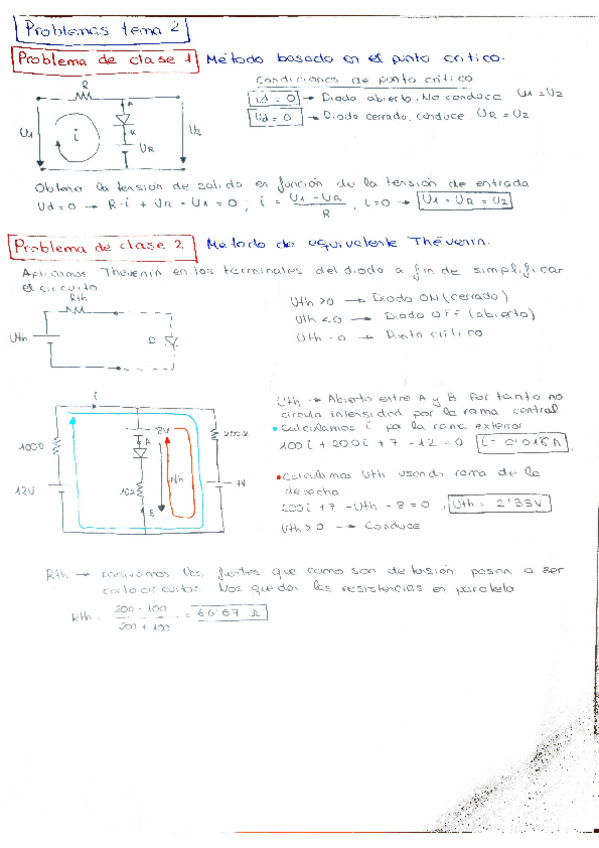 Problemas tema 2
Problema de clase 1 Método basado en el punto critico.
Condiciones de punto critico
id = 0 → Diodo abierto. No conduce U1 = U2
Ud = 0 → Diodo cerrado, conduce. UR = U2
R
A
K
U1
i
UR
U2
Obtener la tensión de salida en función de la tensión de entrada
Ud = 0 → R·i + UR - U1 = 0 ; i = U1 - UR / R , i=0 → U1 = UR = U2
Problema de clase 2. Método de equivalente Thévenin.
Aplicamos Thévenin en los terminales del diodo a fin de simplificar
el circuito
Rth
Uth
D
Uth > 0 → Diodo ON (cerrado)
Uth < 0 → Diodo OFF (abierto)
Uth = 0 → Punto critico
i
100Ω
12V
8V
A
10Ω
B
200Ω
7V
Uth → Abierto entre A y B Por tanto no
circula intensidad por la rama central
• Calculamos i por la rama exterior
100i + 200i + 7 - 12 = 0 i = 0'016A
• Calculamos Uth usando rama de la
derecha
200i + 7 - Uth - 8 = 0 , Uth = 2'33V
Uth > 0 → Conduce
Rth → pasivamos las fuentes que como son de tensión pasan a ser
cortocircuitos Nos quedan las resistencias en paralelo
Rth = 200 · 100 / 200 + 100 = 66'67 Ω